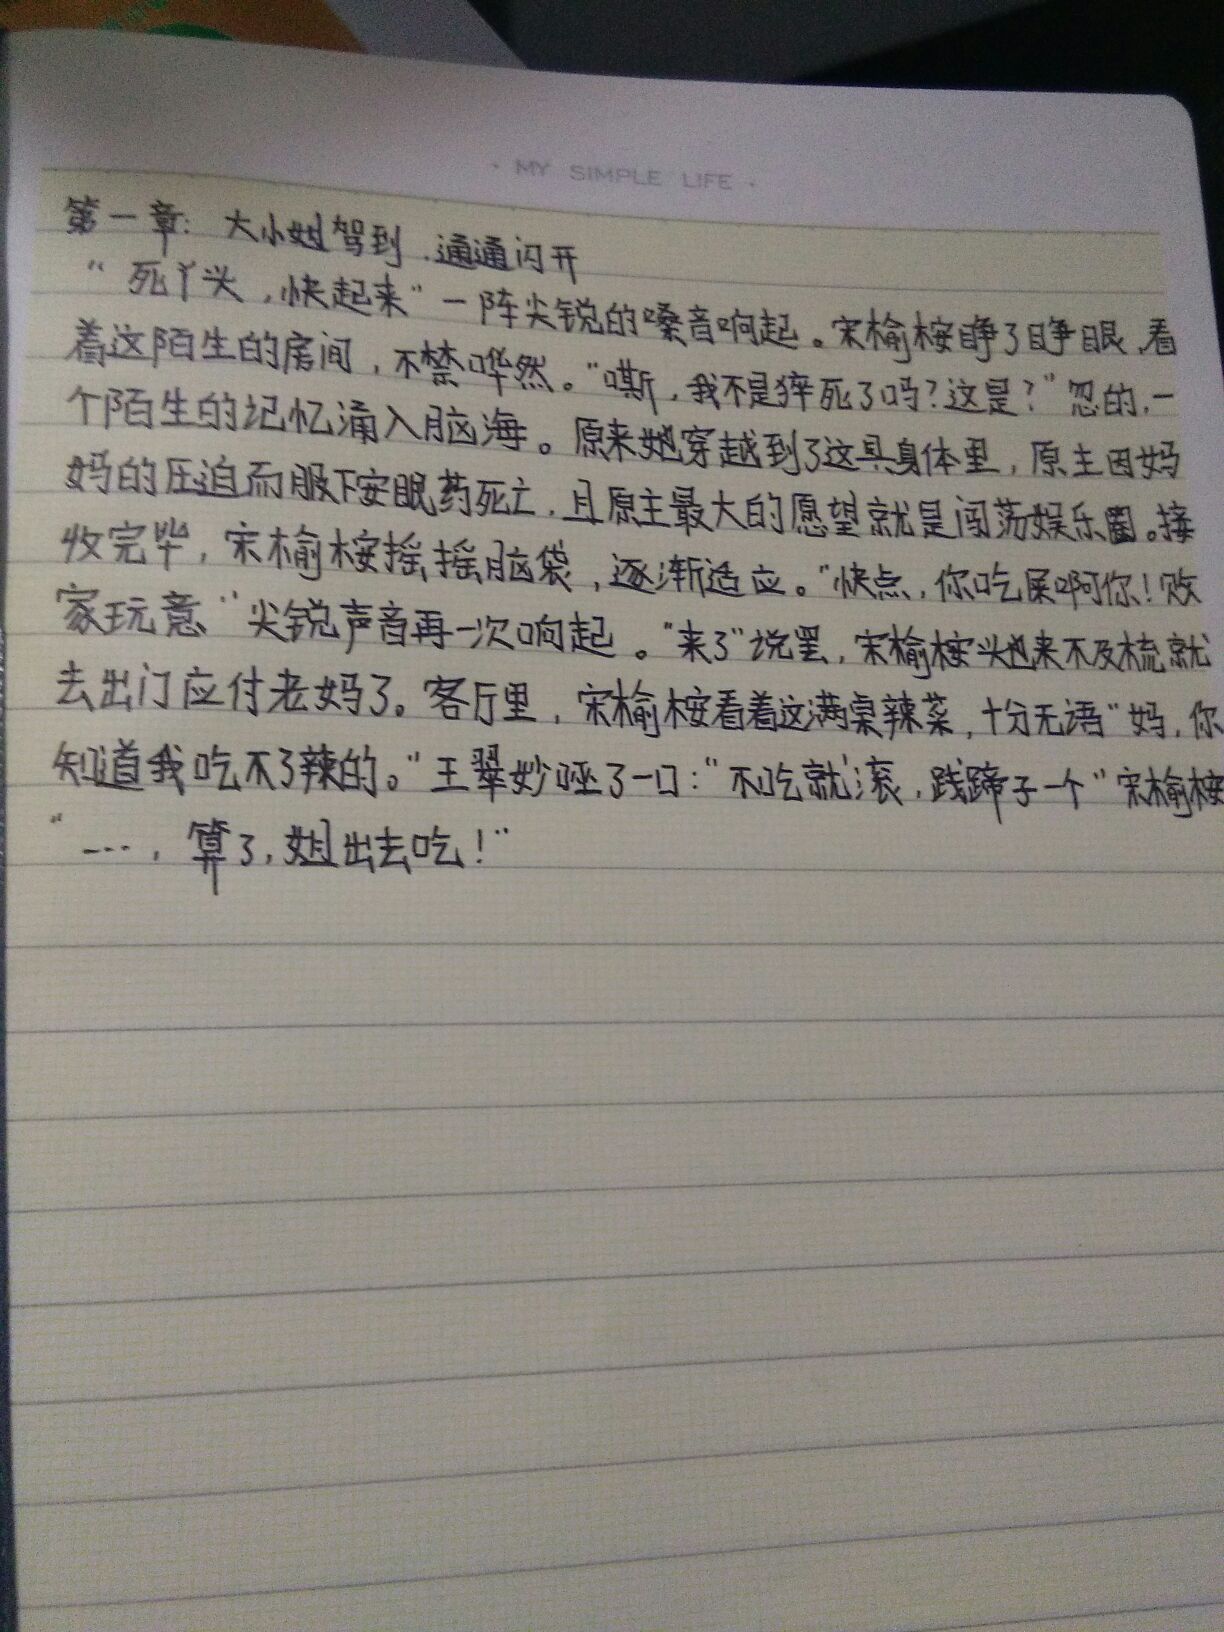 · MY SIMPLE LIFE ·
第一章：大小姐驾到，通通闪开
“死丫头，快起来”一阵尖锐的嗓音响起。宋榆桉睁了睁眼，看
着这陌生的房间，不禁哗然。“嘶，我不是猝死了吗？这是？”忽的，一
个陌生的记忆涌入脑海。原来她穿越到了这具身体里，原主因妈
妈的压迫而服下安眠药死亡，且原主最大的愿望就是闯荡娱乐圈。接
收完毕，宋榆桉摇摇脑袋，逐渐适应。“快点，你吃屎啊你！败
家玩意”尖锐声音再一次响起。“来了”说罢，宋榆桉头也来不及梳就
去出门应付老妈了。客厅里，宋榆桉看着这满桌辣菜，十分无语“妈，你
知道我吃不了辣的。”王翠妙哑了一口：“不吃就滚，贱蹄子一个”宋榆桉
“…，算了，姐出去吃！”